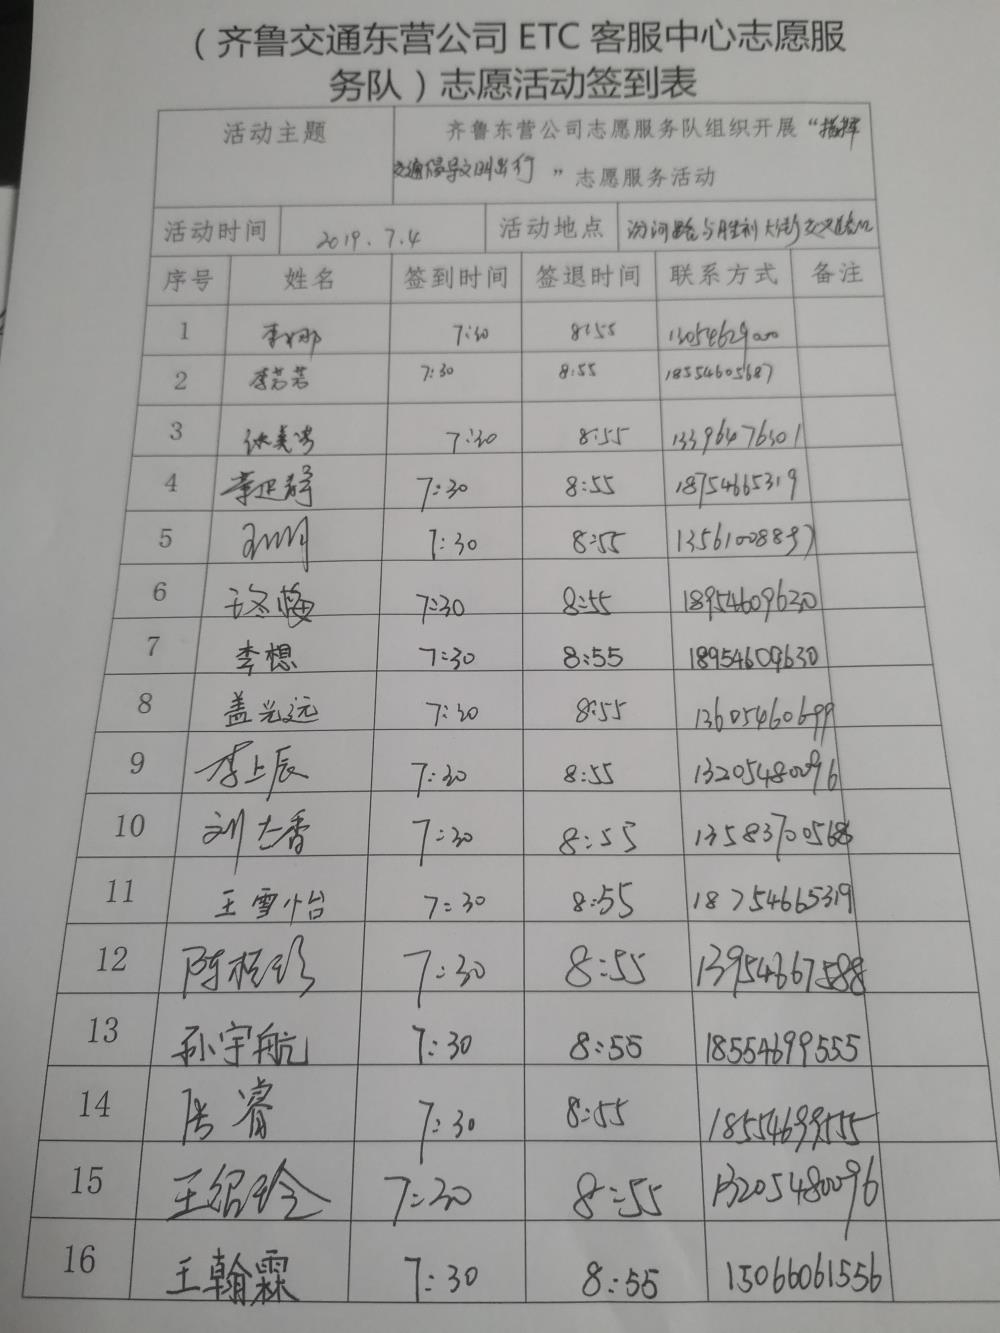 （齐鲁交通东营公司 ETC 客服中心志愿服
务队）志愿活动签到表
活动主题 齐鲁东营公司志愿服务队组织开展“指挥
交通倡导文明出行 ”志愿服务活动
活动时间 2019.7.4 活动地点 汾河路与胜利大街交叉路口
序号 姓名 签到时间 签退时间 联系方式 备注
1 李娜 7:30 8:55
2 李芳芳 7:30 8:55 18554605687
3 7:30 8:55 13396476301
4 7:30 8:55 18754665319
5 7:30 8:55 13561008897
6 7:30 8:55 18954609630
7 李想 7:30 8:55 18954609630
8 盖兴远 7:30 8:55 13605460699
9 李上辰 7:30 8:55 13205480096
10 刘士香 7:30 8:55 13583700568
11 王雪怡 7:30 8:55 18754665319
12 7:30 8:55 13954667588
13 孙宇航 7:30 8:55 18554699555
14 张睿 7:30 8:55 18554699555
15 王绍玲 7:30 8:55 13205480096
16 王翰霖 7:30 8:55 15066061556